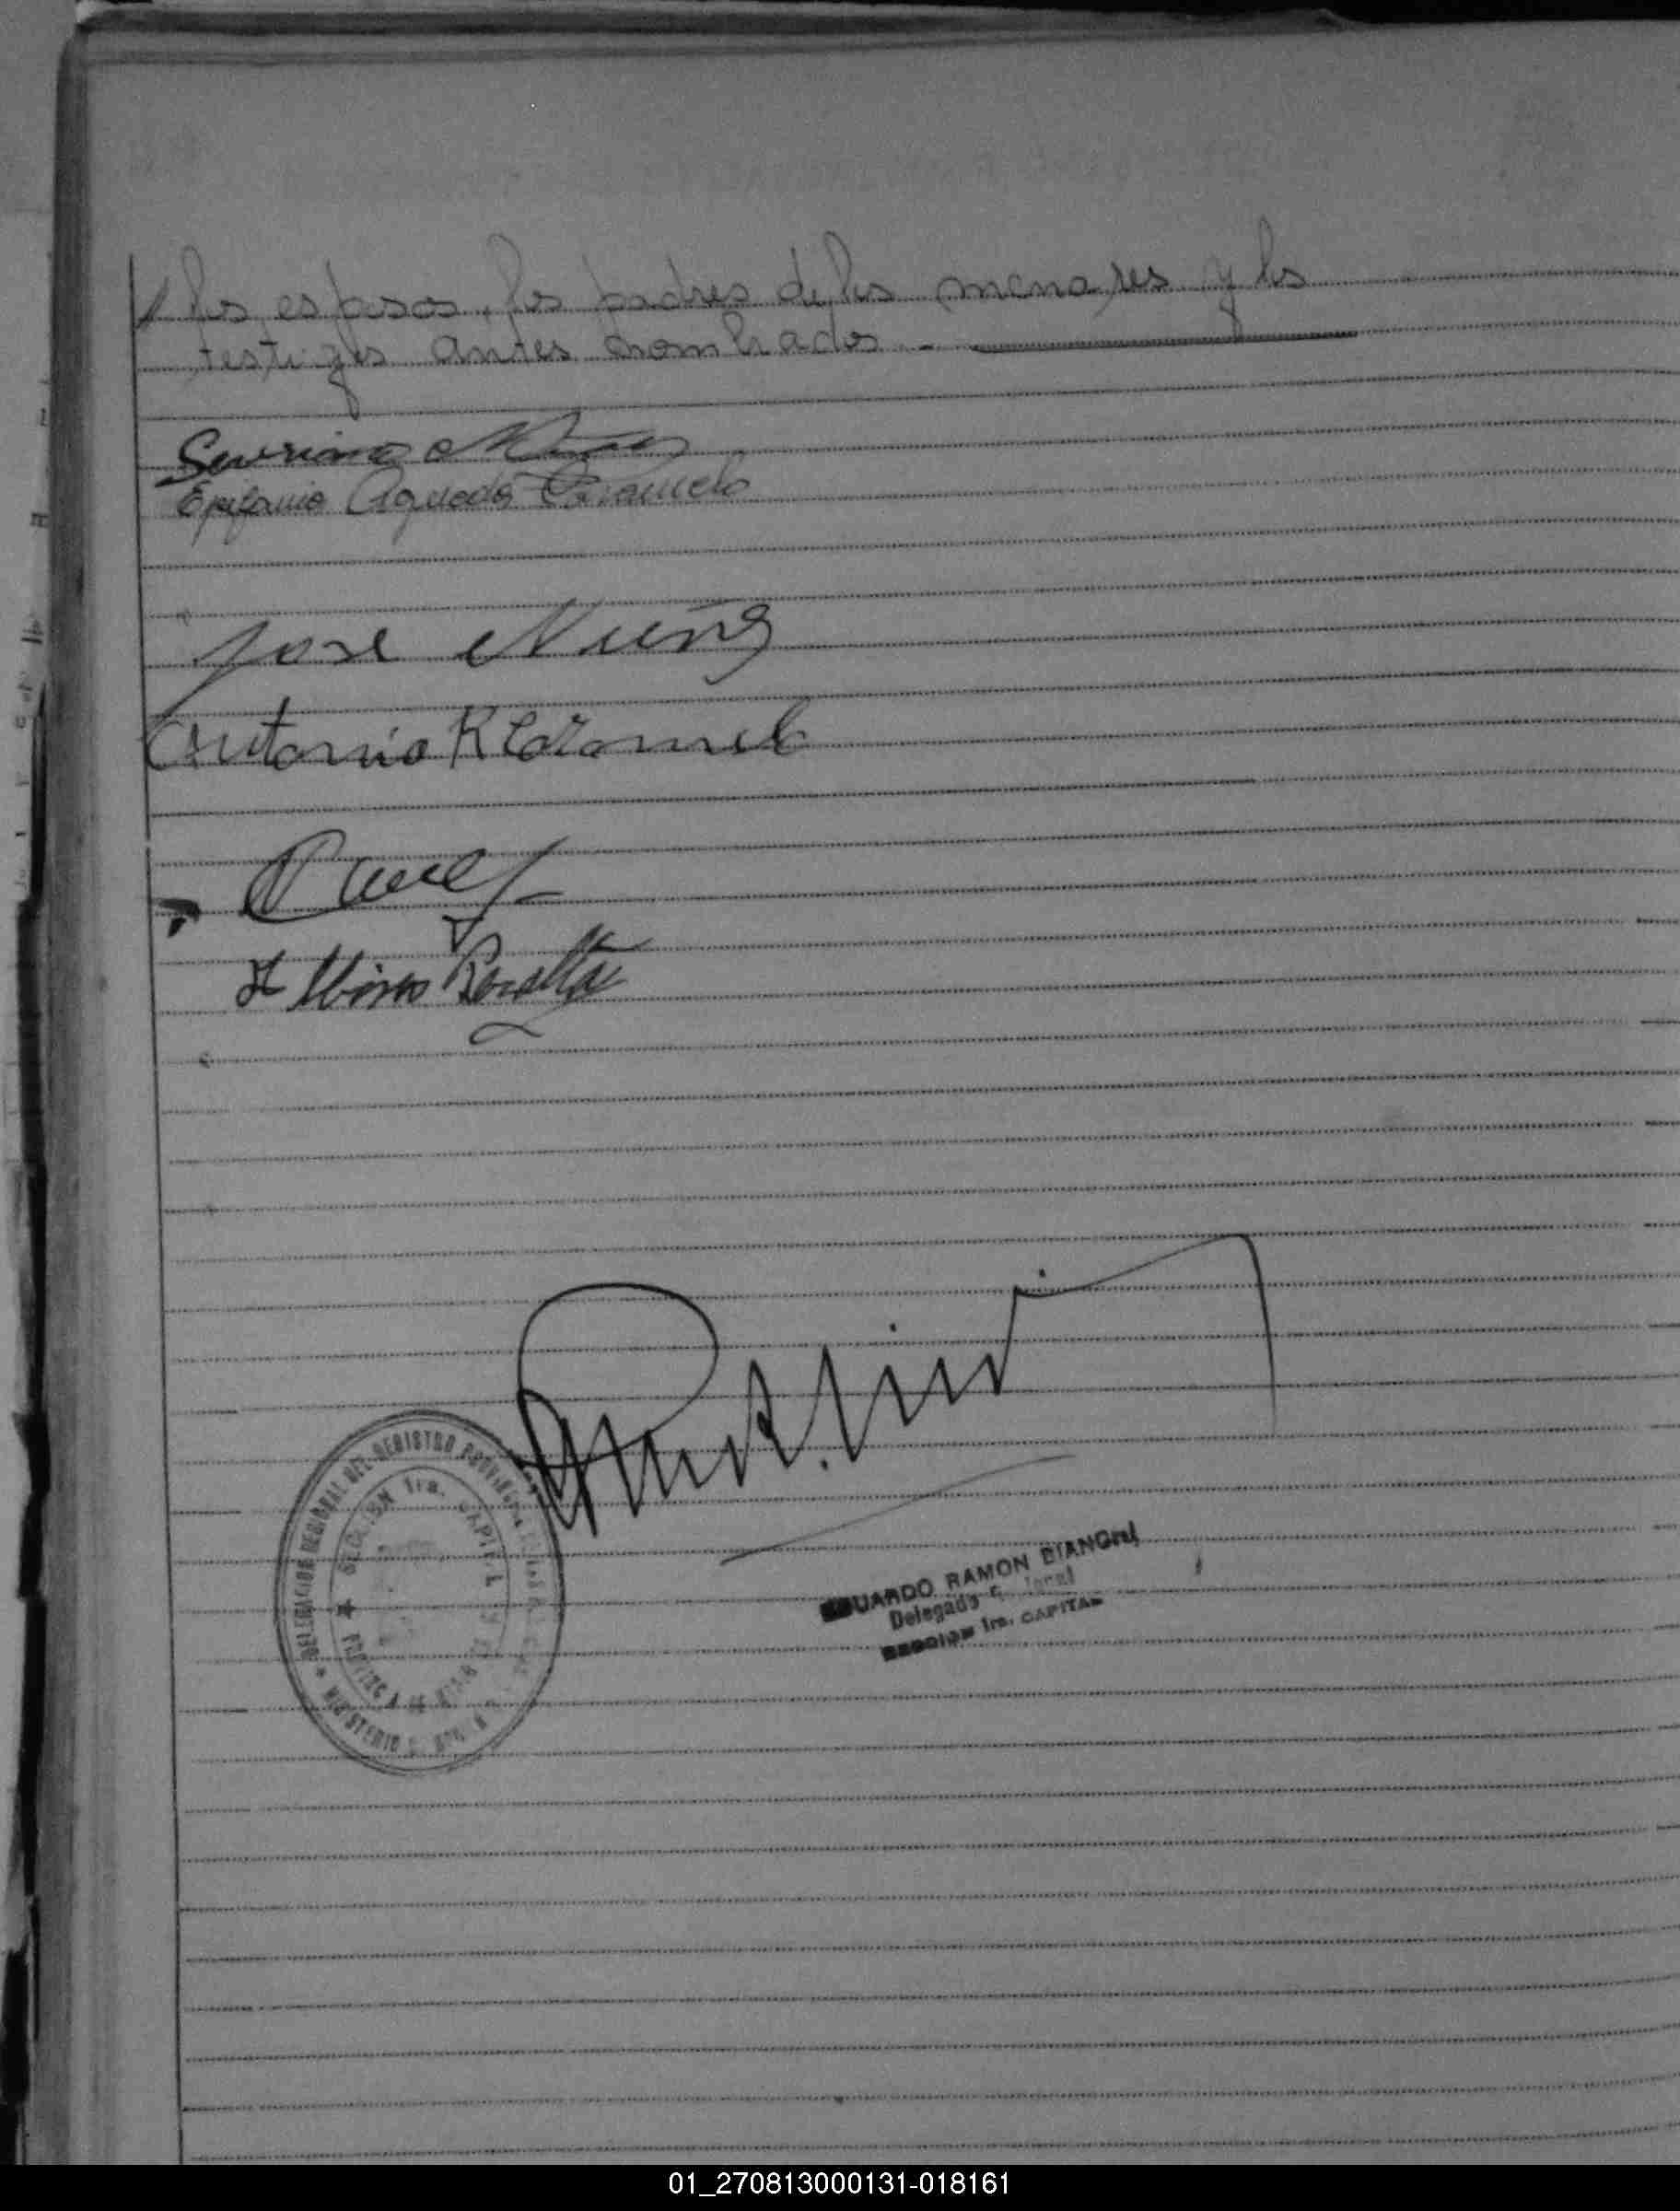 los esposos, los padres de los menores y los
testigos antes nombrados. -
Severiano Nuñez
Epifania Agueda Caramelo
Jose Nuñez
Antonio R Caramelo
Peralta
DELEGACION REGIONAL DEL REGISTRO PROVINCIAL
SECCION 1ra. CAPITAL
MINISTERIO
EDUARDO RAMON BIANCHI
Delegado
SECCION 1ra. CAPITAL
01_270813000131-018161